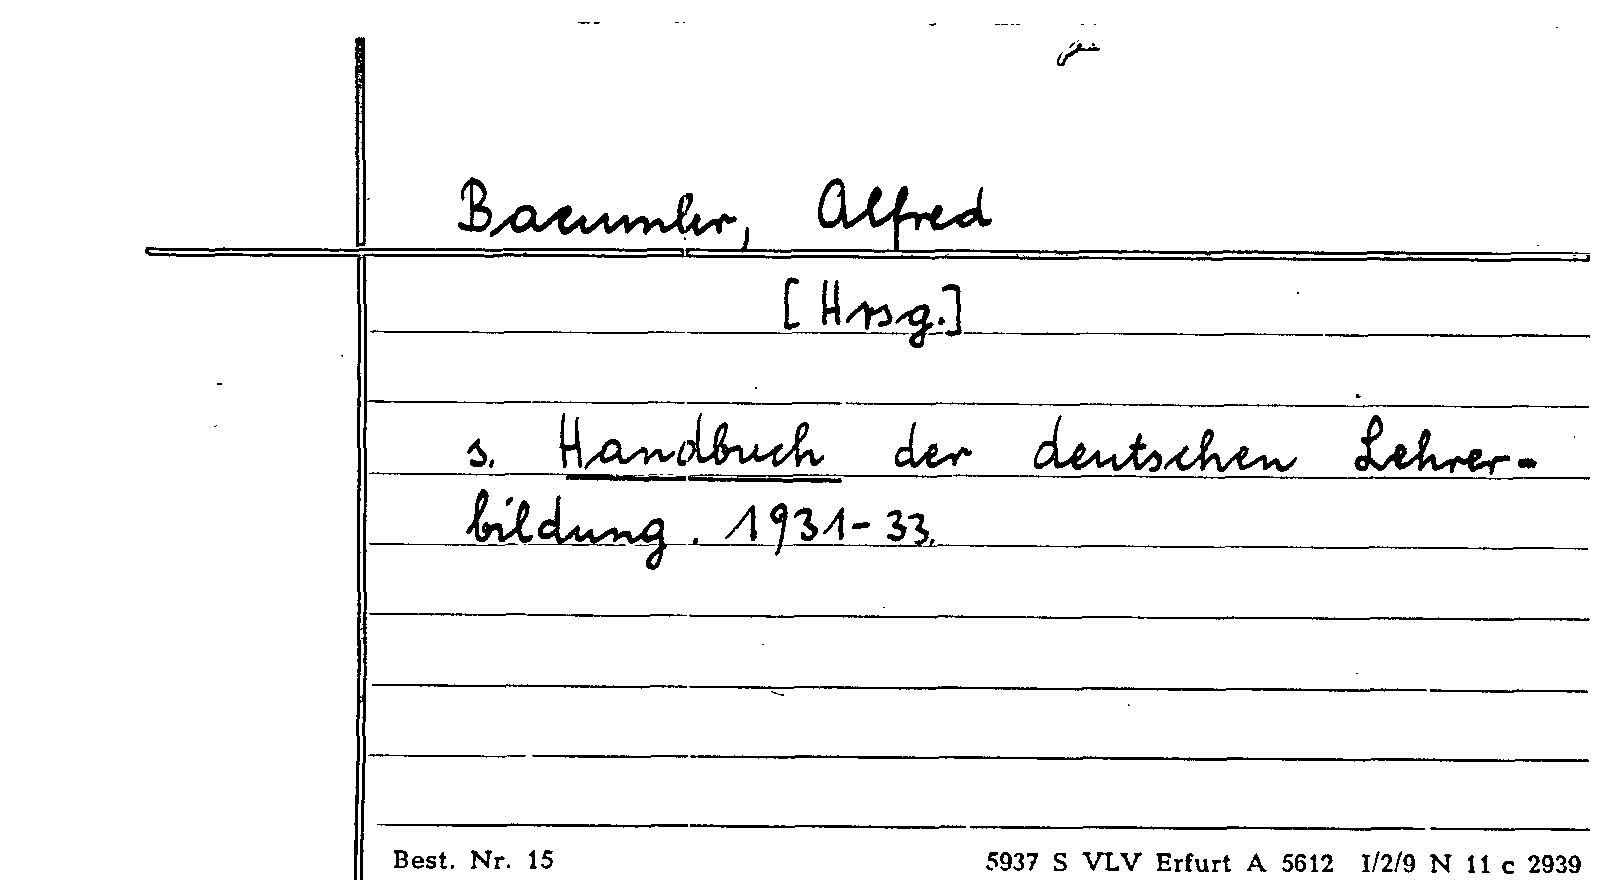 Baeumler, Alfred
[Hrsg.]
s. Handbuch der deutschen Lehrer-
bildung. 1931-33.
Best. Nr. 15 5937 S VLV Erfurt A 5612 I/2/9 N 11 c 2939